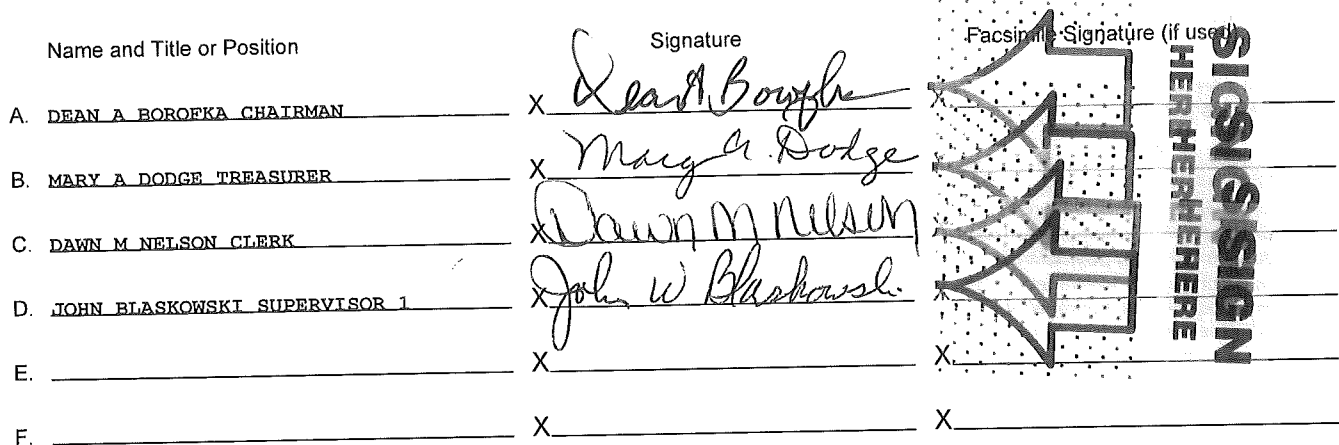 Name and Title or Position Signature Facsimile Signature (if used)
A. DEAN A BOROFKA CHAIRMAN X Dean A. Borofka X
B. MARY A DODGE TREASURER X Mary A. Dodge X
C. DAWN M NELSON CLERK X Dawn M Nelson X
D. JOHN BLASKOWSKI SUPERVISOR 1 X John W Blaskowski X
E. X X
F. X X
SIGN SIGN SIGN
HERE HERE HERE